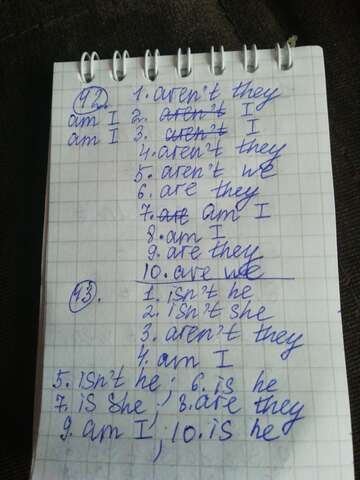 42. 1. aren't they
am I 2. aren't I
am I 3. aren't I
4. aren't they
5. aren't we
6. are they
7. are am I
8. am I
9. are they
10. are we
43. 1. isn't he
2. isn't she
3. aren't they
4. am I
5. isn't he; 6. is he
7. is she; 8. are they
9. am I; 10. is he